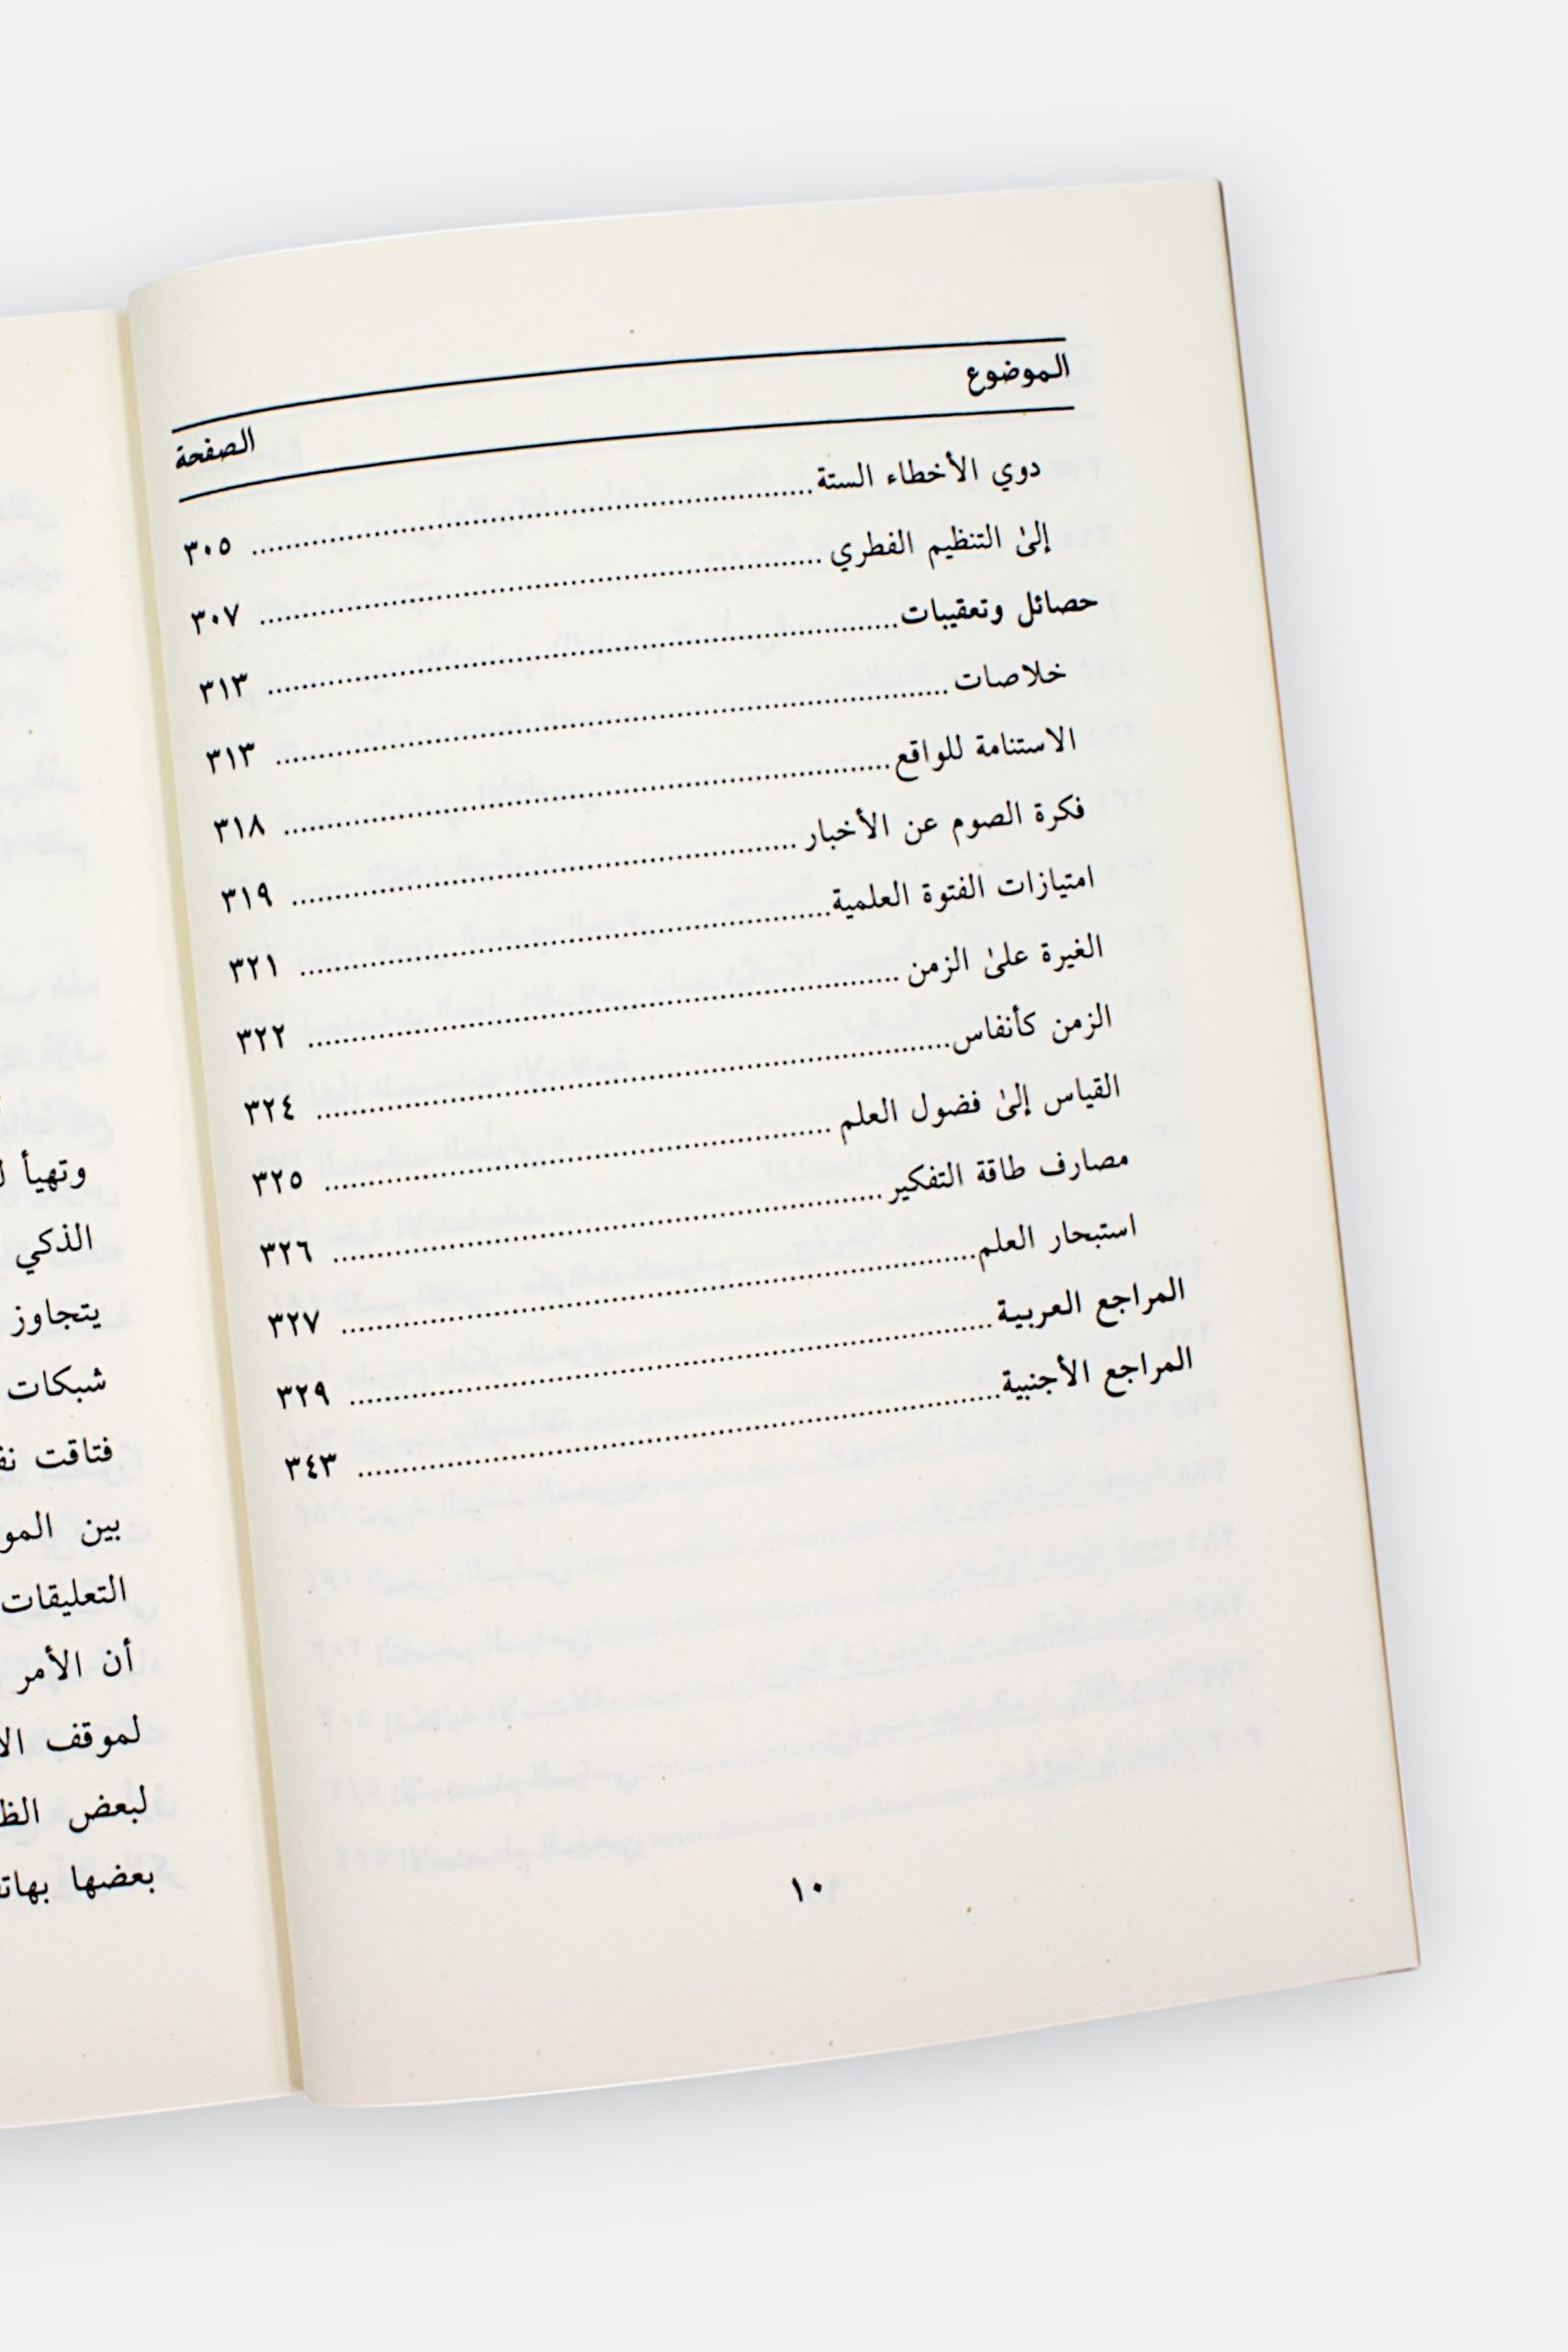 الموضوع
الصفحة
دوي الأخطاء الستة ٣٠٥
إلىٰ التنظيم الفطري ٣٠٧
حصائل وتعقيبات ٣١٣
خلاصات ٣١٣
الاستنامة للواقع ٣١٨
فكرة الصوم عن الأخبار ٣١٩
امتيازات الفتوة العلمية ٣٢١
الغيرة علىٰ الزمن ٣٢٢
الزمن كأنفاس ٣٢٤
القياس إلىٰ فضول العلم ٣٢٥
مصارف طاقة التفكير ٣٢٦
استبحار العلم ٣٢٧
المراجع العربية ٣٢٩
المراجع الأجنبية ٣٤٣
١٠
وتهيأ
الذكي
يتجاوز
شبكات
فتاقت
بين
التعليقات
أن الأمر
لموقف
لبعض
بعضها